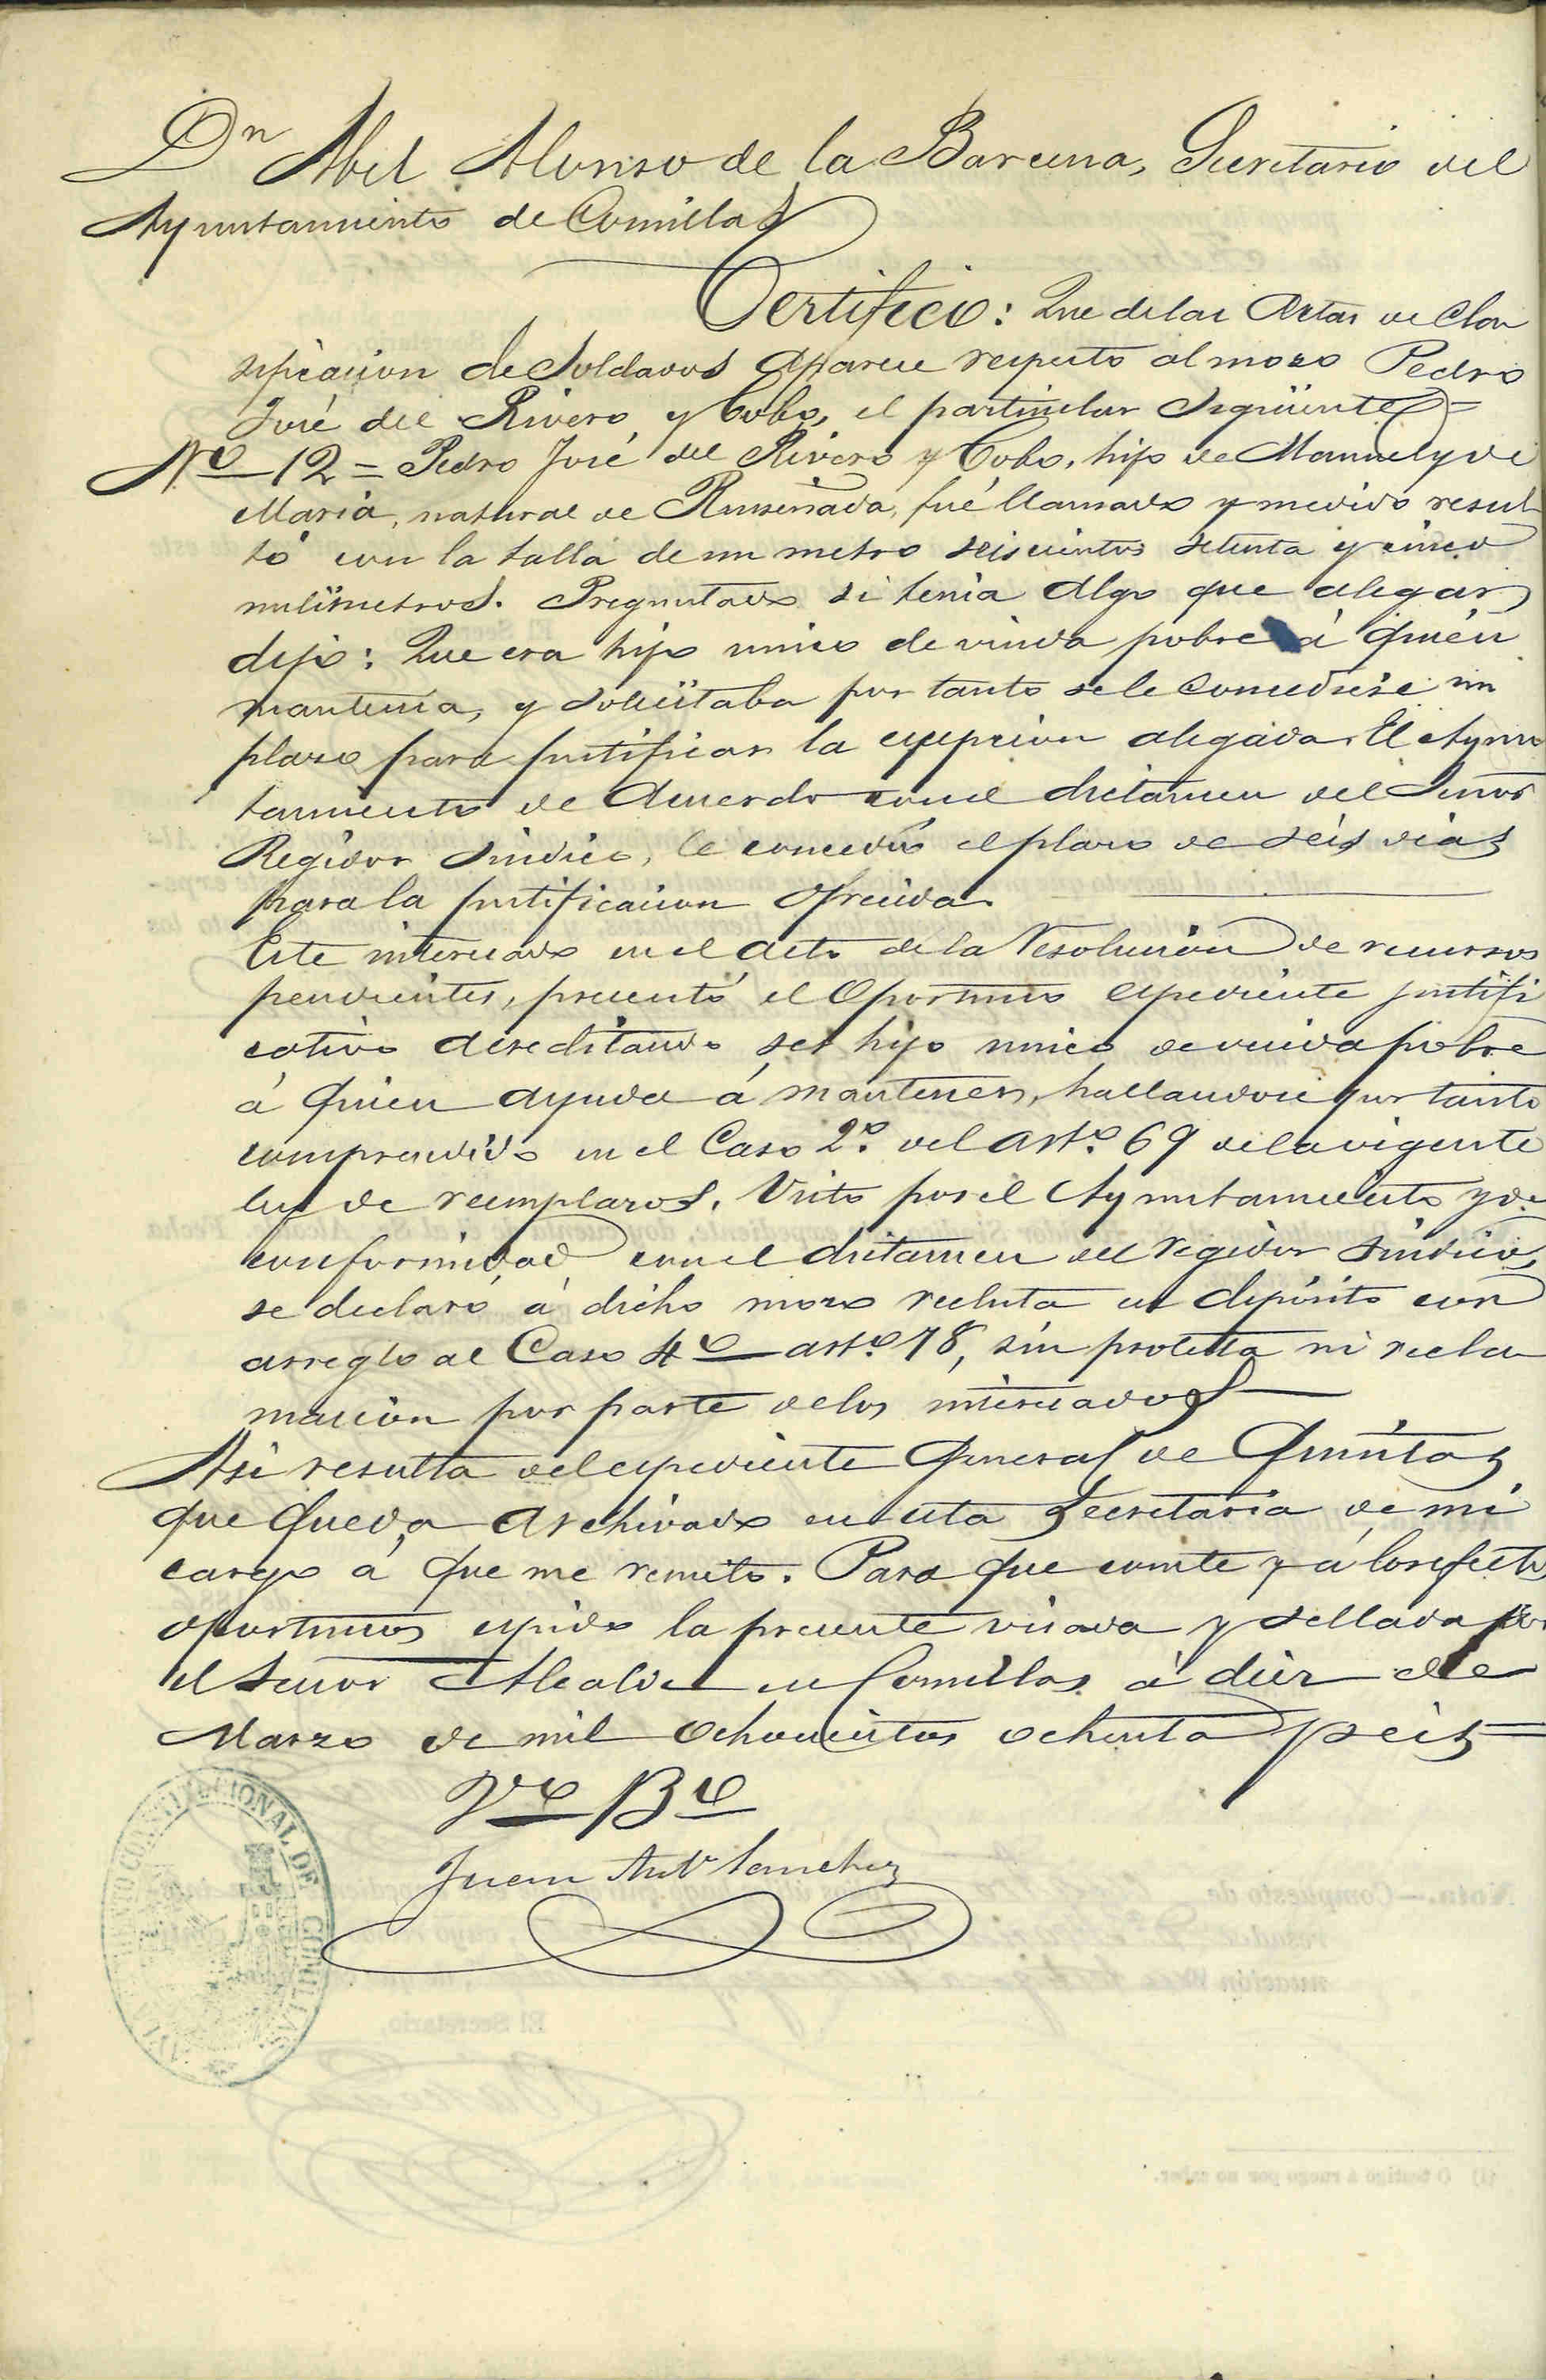 Dn Abel Alonso de la Barcena, Secretario del
Ayuntamiento de Comillas
Certifico: Que delas Actas de Cla
sificacion de Soldados aparece respecto al mozo Pedro
José del Rivero y Cobo, el particular siguiente=
No 12= Pedro José del Rivero y Cobo, hijo de Manuel y de
Maria, natural de Ruiseñada, fué llamado y medido resul
tó con la talla de un metro seiscientos setenta y cinco
milimetros. Preguntado si tenia algo que alegar
dijo: Que era hijo unico de viuda pobre á quién
mantenia, y solicitaba por tanto se le concediese un
plazo para justificar la esepcion alegada. El Ayun
tamiento de acuerdo conel dictamen del Señor
Regidor Sindico, le concedió el plazo de seis dias
para la justificacion ofrecida.
Este interesado en el acto dela Resolucion de recursos
pendientes, presentó el oportuno espediente justifi
cativo acreditando ser hijo unico de viuda pobre
á quien ayuda á mantener, hallandose por tanto
comprendido en el Caso 2º. del artº. 69 dela vigente
ley de reemplazos. Visto por el Ayuntamiento y de
conformidad conel dictamen del regidor Sindico,
se declaró á dicho mozo recluta en depósito con
arreglo al Caso 4º artº. 78, sin protesta ni recla
macion por parte delos interesados
Asi resulta del espediente General de Quintas
que queda archivado en esta Secretaria de mi
cargo á que me remito. Para que conste y á los efectos
oportunos espido la presente visada y sellada por
el Señor Alcalde en Comillas á diez de
Marzo de mil ochocientos ochenta y seis=
Vº Bº
Juan Antº Sanchez
AYUNTAMIENTO CONSTITUCIONAL DE COMILLAS